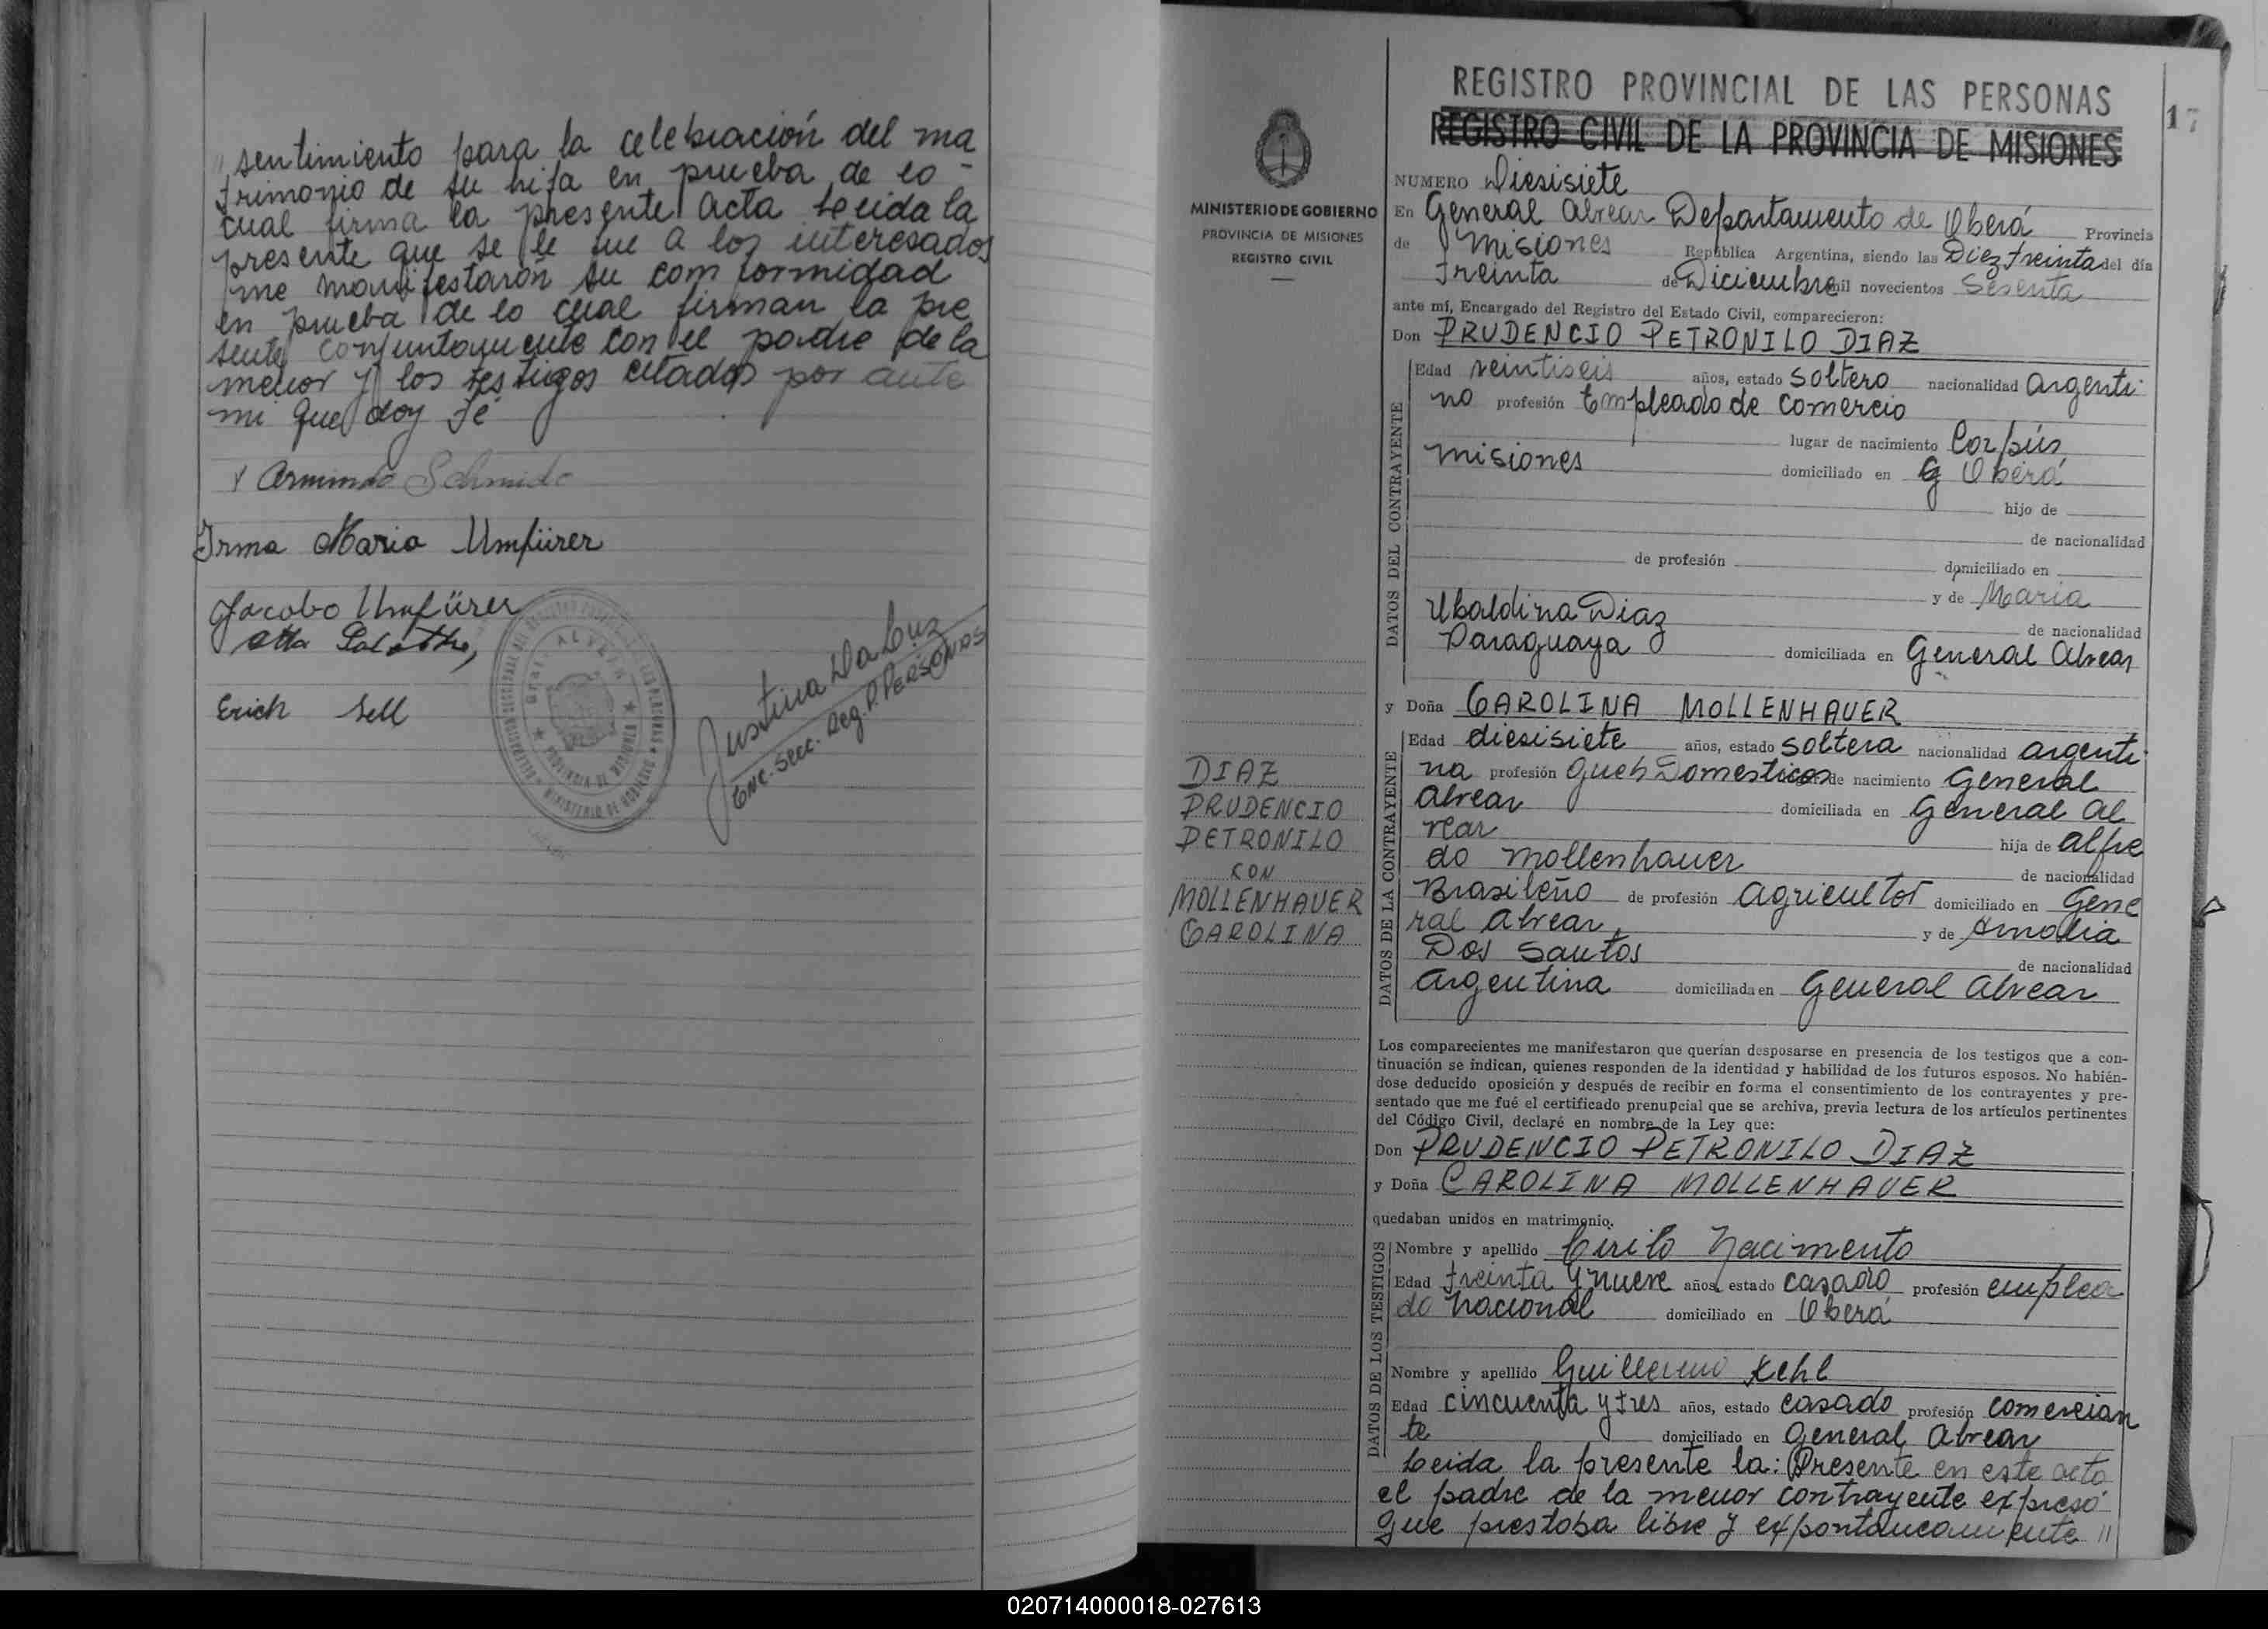 " sentimiento para la celebración del ma
trimonio de su hija en prueba de lo -
cual firma la presente acta Leida la
presente que se le fue a los interesados
me manifestarón su comformidad
en prueba de lo cual firman la pre
sente conjuntamente con el padre de la
menor y los testigos citados por ante
mi que doy fé
Armindo Schmidt
Irma Maria Umfürer
Jacobo Umfürer
Erich Sell
Justina Da Luz
Enc. Secc. Reg. P. PERSONAS
17
REGISTRO PROVINCIAL DE LAS PERSONAS
REGISTRO CIVIL DE LA PROVINCIA DE MISIONES
MINISTERIO DE GOBIERNO
PROVINCIA DE MISIONES
REGISTRO CIVIL
NUMERO Diesisiete
En General Alvear Departamento de Oberá Provincia
de Misiones República Argentina, siendo las Diez treinta del día
treinta de Diciembre mil novecientos Sesenta
ante mí, Encargado del Registro del Estado Civil, comparecieron:
Don PRUDENCIO PETRONILO DIAZ
DATOS DEL CONTRAYENTE
Edad veintiseis años, estado soltero nacionalidad argenti-
no profesión Empleado de comercio
lugar de nacimiento Corpús
misiones domiciliado en Oberá
hijo de
de nacionalidad
de profesión domiciliado en
y de Maria
Ubaldina Diaz
de nacionalidad
Paraguaya domiciliada en General Alvear
y Doña CAROLINA MOLLENHAUER
DATOS DE LA CONTRAYENTE
Edad diesisiete años, estado soltera nacionalidad argenti-
na profesión Queh Domesticos de nacimiento General
Alvear domiciliada en General Al
vear
hija de Alfre
do Mollenhauer
de nacionalidad
Brasileño de profesión Agricultor domiciliado en Gene
ral Alvear, y de Amalia
Dos Santos
de nacionalidad
Argentina domiciliada en General Alvear
DIAZ
PRUDENCIO
PETRONILO
CON
MOLLENHAUER
CAROLINA
Los comparecientes me manifestaron que querían desposarse en presencia de los testigos que a con-
tinuación se indican, quienes responden de la identidad y habilidad de los futuros esposos. No habién-
dose deducido oposición y después de recibir en forma el consentimiento de los contrayentes y pre-
sentado que me fué el certificado prenupcial que se archiva, previa lectura de los artículos pertinentes
del Código Civil, declaré en nombre de la Ley que:
Don PRUDENCIO PETRONILO DIAZ
y Doña CAROLINA MOLLENHAUER
quedaban unidos en matrimonio.
DATOS DE LOS TESTIGOS
Nombre y apellido Cirilo Nacimento
Edad treinta y nueve años, estado casado profesión emplea
do nacional domiciliado en Oberá
Nombre y apellido Guillermo Kehl
Edad cincuenta y tres años, estado casado profesión comercian
te domiciliado en General Alvear
Leida la presente la: Presente en este acto
el padre de la menor contrayente expresó
que prestaba libre y expontaneamente "
020714000018-027613